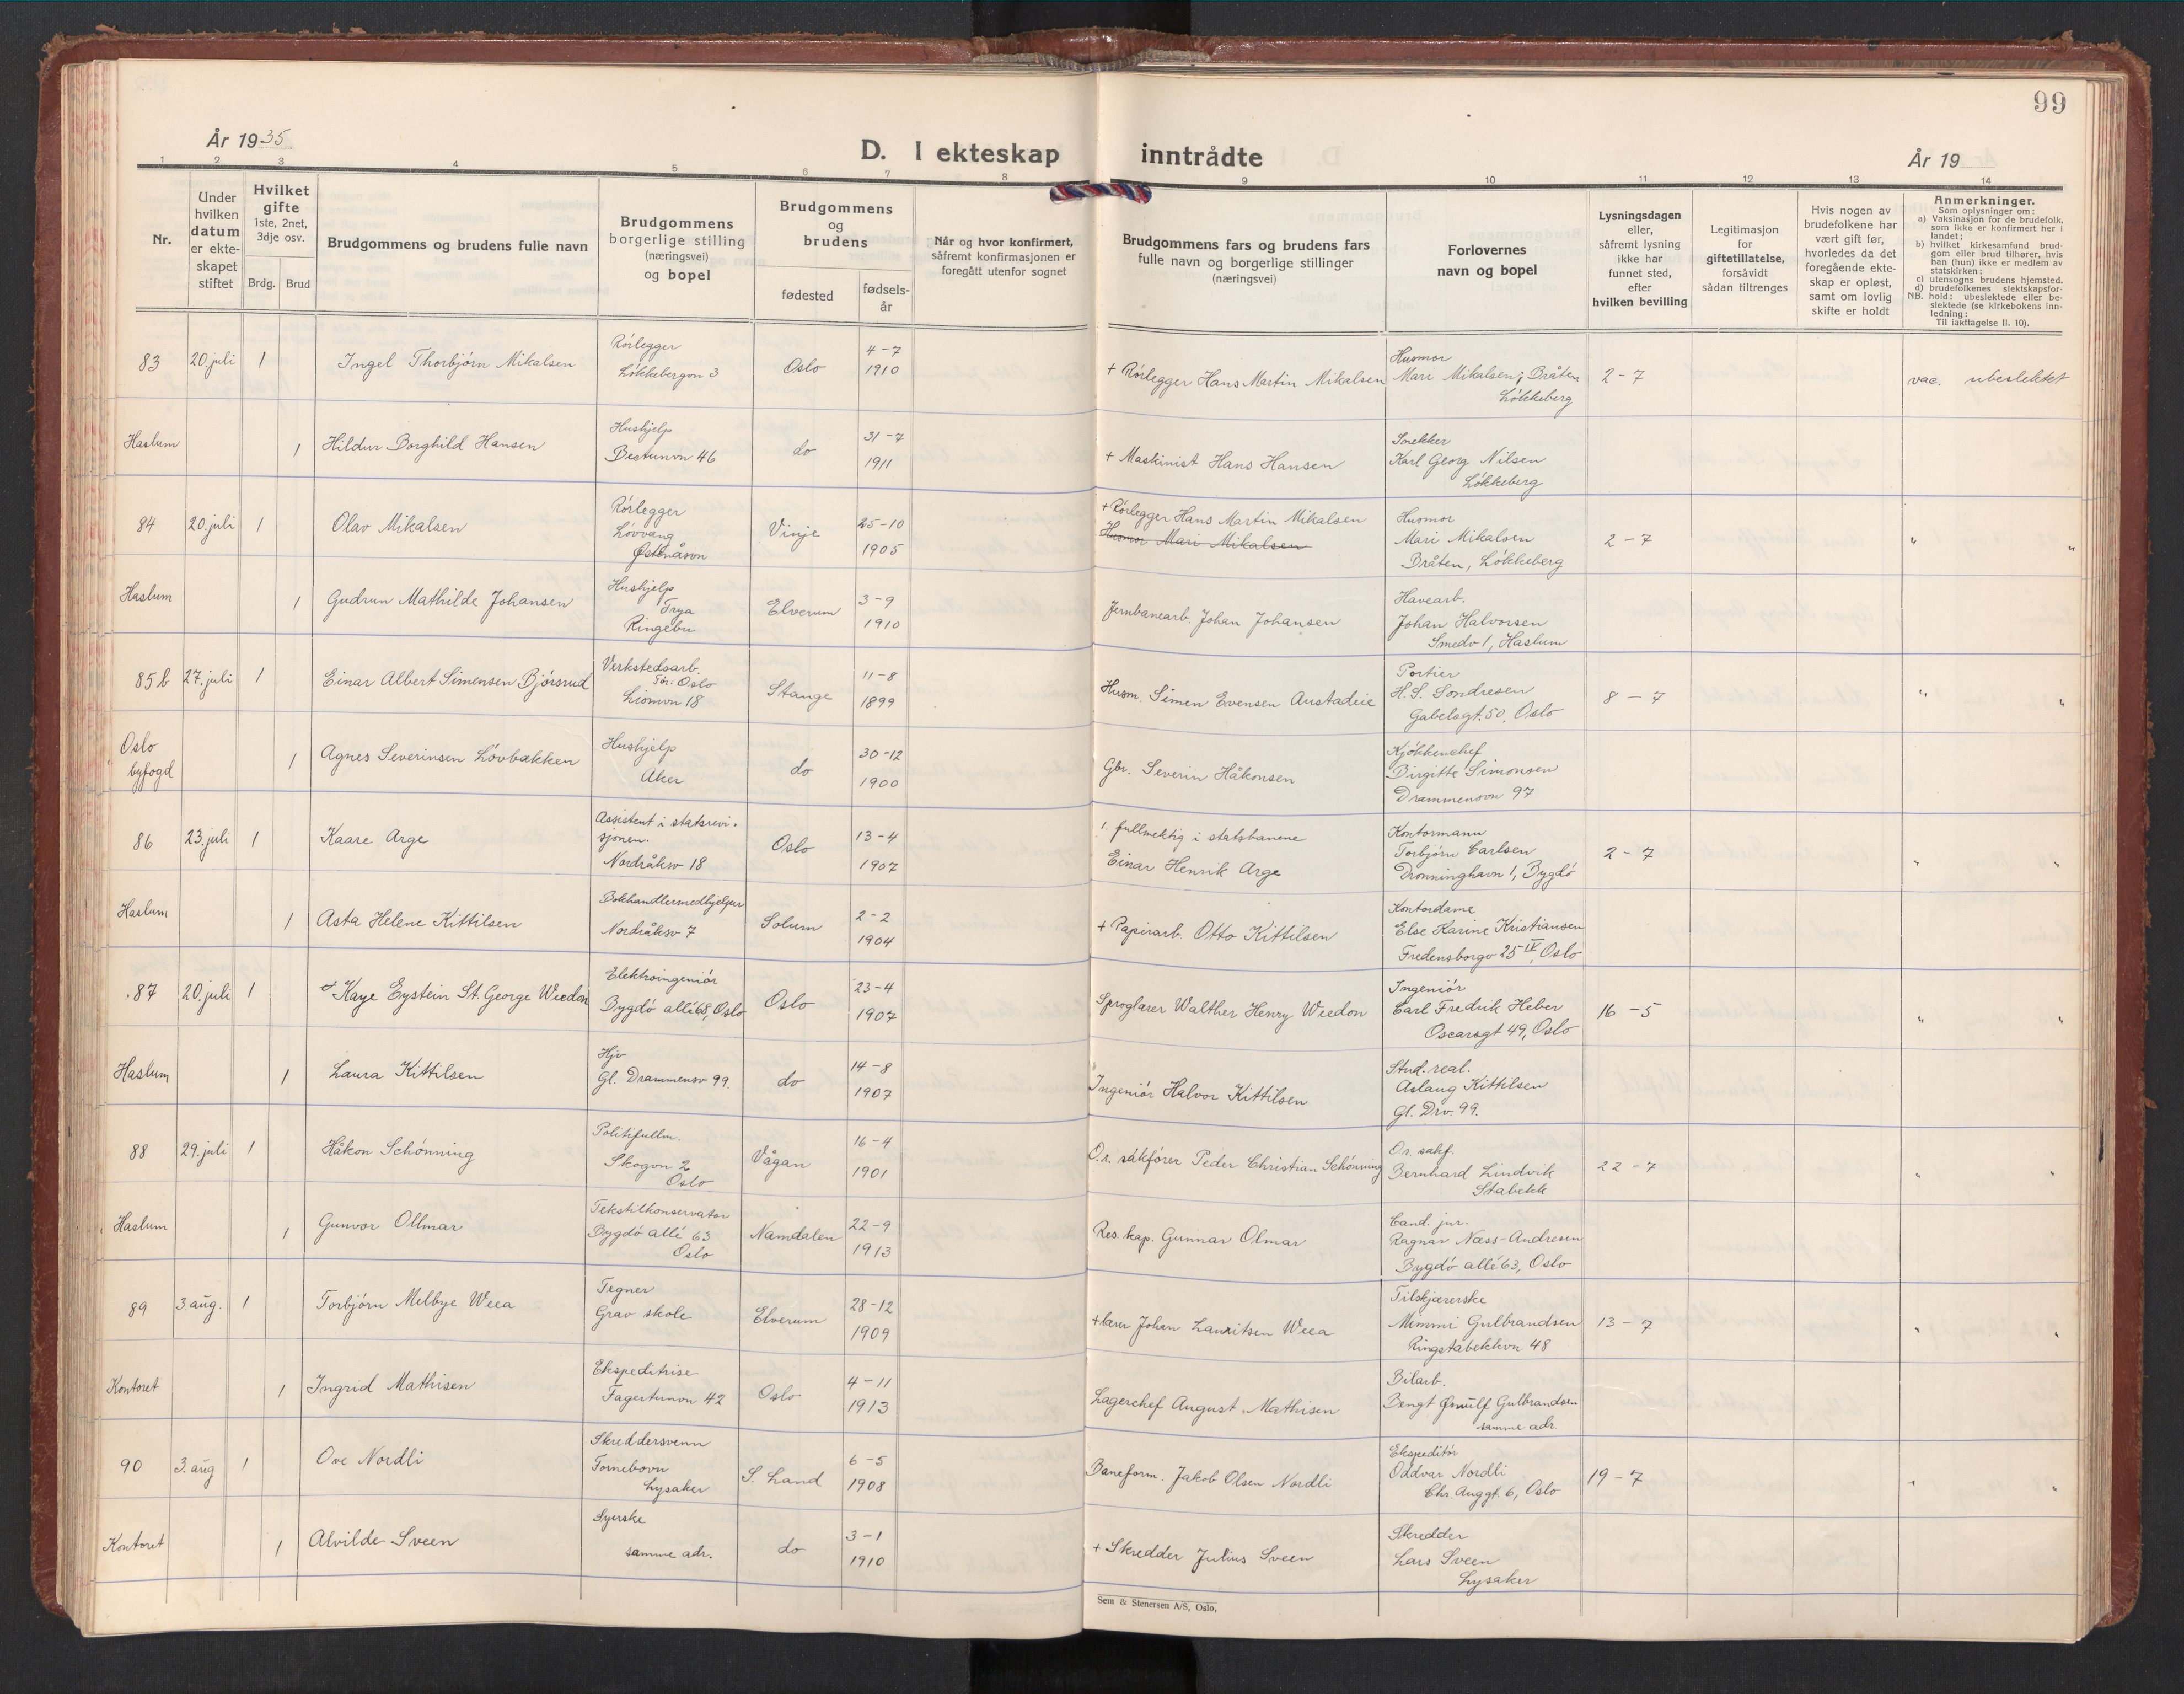 99
År 1935
D. I ekteskap inntrådte
År 19
1 2 3 4 5 6 7 8 9 10 11 12 13 14
Nr.
Under
hvilken
datum
er ekte-
skapet
stiftet
Hvilket
gifte
1ste, 2net,
3dje osv.
Brdg. Brud
Brudgommens og brudens fulle navn
Brudgommens
borgerlige stilling
(næringsvei)
og bopel
Brudgommens
og
brudens
fødested
fødsels-
år
Når og hvor konfirmert,
såfremt konfirmasjonen er
foregått utenfor sognet
Brudgommens fars og brudens fars
fulle navn og borgerlige stillinger
(næringsvei)
Forlovernes
navn og bopel
Lysningsdagen
eller,
såfremt lysning
ikke har
funnet sted,
efter
hvilken bevilling
Legitimasjon
for
giftetillatelse,
forsåvidt
sådan tiltrenges
Hvis nogen av
brudefolkene har
vært gift før,
hvorledes da det
foregående ekte-
skap er opløst,
samt om lovlig
skifte er holdt
Anmerkninger.
Som oplysninger om:
a) Vaksinasjon for de brudefolk,
som ikke er konfirmert her i
landet;
b) hvilket kirkesamfund brud-
gom eller brud tilhører, hvis
han (hun) ikke er medlem av
statskirken;
c) utensogns brudens hjemsted.
d) brudefolkenes slektskapsfor-
NB. hold: ubeslektede eller be-
slektede (se kirkebokens inn-
ledning:
Til iakttagelse II. 10).
83 20. juli 1 Ingel Thorbjörn Mikalsen
Rörlegger
Lökkebergvn 3
Oslo
4-7
1910
+ Rörlegger Hans Martin Mikalsen
Husmor
Mari Mikalsen; Bråten
Lökkeberg
2-7
vac. ubeslektet
Haslum 1 Hildur Borghild Hansen
Hushjelp
Bestunvn 46
do
31-7
1911
+ Maskinist Hans Hansen
Snekker
Karl Georg Nilsen
Lökkeberg
84 20. juli 1 Olav Mikalsen
Rörlegger
Lövvang
Østernåsvn
Vinje
25-10
1905
+ Rörlegger Hans Martin Mikalsen
Husmor Mari Mikalsen
Husmor
Mari Mikalsen
Bråten, Lökkeberg
2-7
" "
Haslum 1 Gudrun Mathilde Johansen
Hushjelp
Frya
Ringebu
Elverum
3-9
1910
Jernbanearb. Johan Johansen
Havearb.
Johan Halvorsen
Smedv 1, Haslum
85b 27. juli 1 Einar Albert Simensen Björsrud
Verkstedsarb.
Oslo
Liomvn 18
Stange
11-8
1899
Husm. Simen Evensen Austadeie
Portier
H. S. Sondresen
Gabelsgt. 50, Oslo
8-7
" "
Oslo
byfogd
1 Agnes Severinsen Lövbækken
Hushjelp
Aker
do
30-12
1900
Gbr. Severin Håkonsen
Kjökkenchef
Birgitte Simonsen
Drammensvn 97
86 23. juli 1 Kaare Arge
Assistent i statsrevi-
sjonen.
Nordråksv 18
Oslo
13-4
1907
1. fullmektig i statsbanene
Einar Henrik Arge
Kontormann
Torbjörn Carlsen
Dronninghavn 1, Bygdö
2-7
" "
Haslum 1 Asta Helene Kittilsen
Bokhandlermedhjelper
Nordråksv 7
Solum
2-2
1904
+ Papirarb. Otto Kittilsen
Kontordame
Else Karine Kristiansen
Fredensborgv 25 IV, Oslo
87 20. juli 1 Kaye Eystein St. George Weedon
Elektroingeniör
Bygdö allé 68, Oslo
Oslo
23-4
1907
Sproglærer Walther Henry Weedon
Ingeniör
Carl Fredrik Heber
Oscarsgt 49, Oslo
16-5
" "
Haslum 1 Laura Kittilsen
Hjv
Gl. Drammensv 99.
do
14-8
1907
Ingeniör Halvor Kittilsen
Stud. real.
Aslaug Kittilsen
Gl. Drv. 99.
88 29. juli 1 Håkon Schönning
Politifullm.
Skogvn 2
Oslo
Vågan
16-4
1901
O.r. sakförer Peder Christian Schönning
O.r. sakf.
Bernhard Lindvik
Stabekk
22-7
" "
Haslum 1 Gunvor Ollmar
Tekstilkonservator
Bygdö allé 63
Oslo
Namdalen
22-9
1913
Res. kap. Gunnar Olmar
Cand. jur.
Ragnar Næss-Andresen
Bygdö allé 63, Oslo
89 3. aug. 1 Torbjörn Melbye Weea
Tegner
Grav skole
Elverum
28-12
1909
+ lærer Johan Lauritsen Weea
Tilskjærerske
Mimmi Gulbrandsen
Ringstabekkvn 48
13-7
" "
Kontoret 1 Ingrid Mathisen
Ekspeditrise
Fagertunvn 42
Oslo
4-11
1913
Lagerchef August Mathisen
Bilarb.
Bengt Ørnulf Gulbrandsen
samme adr.
90 3. aug 1 Ove Nordli
Skreddersvenn
Fornebovn
Lysaker
S. Land
6-5
1908
Baneform. Jakob Olsen Nordli
Ekspeditör
Oddvar Nordli
Chr. Auggt. 6, Oslo
19-7
" "
Kontoret 1 Alvilde Sveen
Syerske
samme adr.
do
3-1
1910
+ Skredder Julius Sveen
Skredder
Lars Sveen
Lysaker
Sem & Stenersen A/S, Oslo.